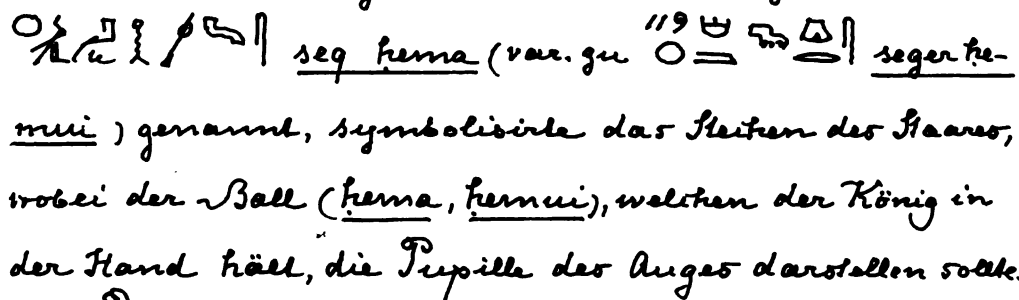 seq ḥema (var. zu seqer ḥe-
mui) genannt, symbolisirte das Stechen des Staares,
wobei der Ball (ḥema, ḥemui), welchen der König in
der Hand hält, die Pupille des Auges darstellen sollte.